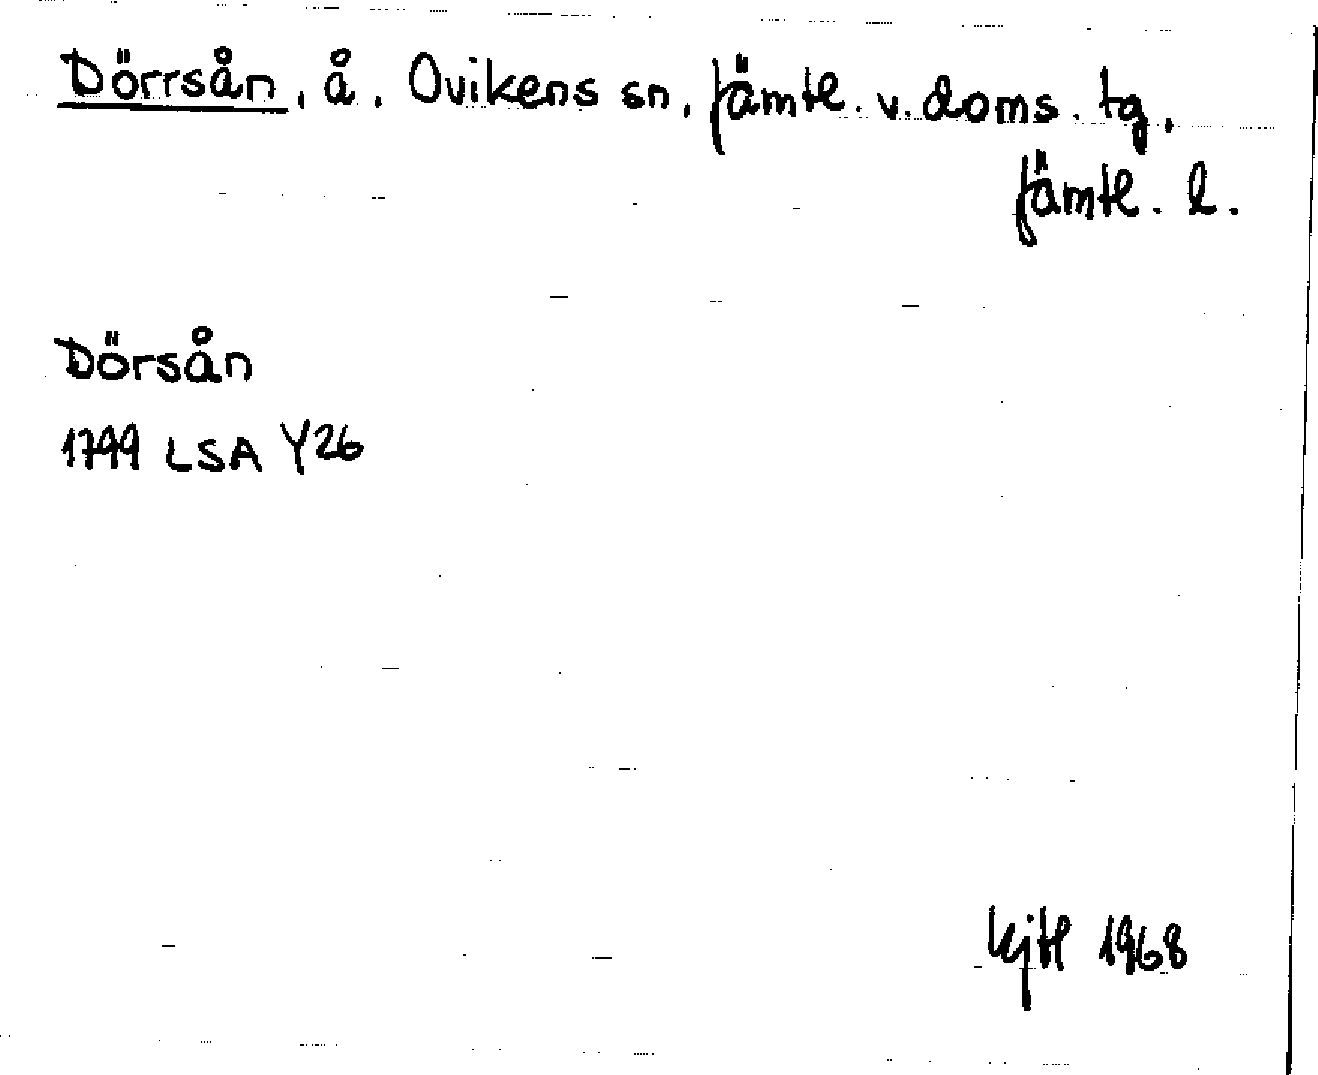 Dörrsån, å, Ovikens sn, Jämtl. v. doms. tg,
Jämtl. l.
Dörsån
1799 LSA Y26
kjtl 1968